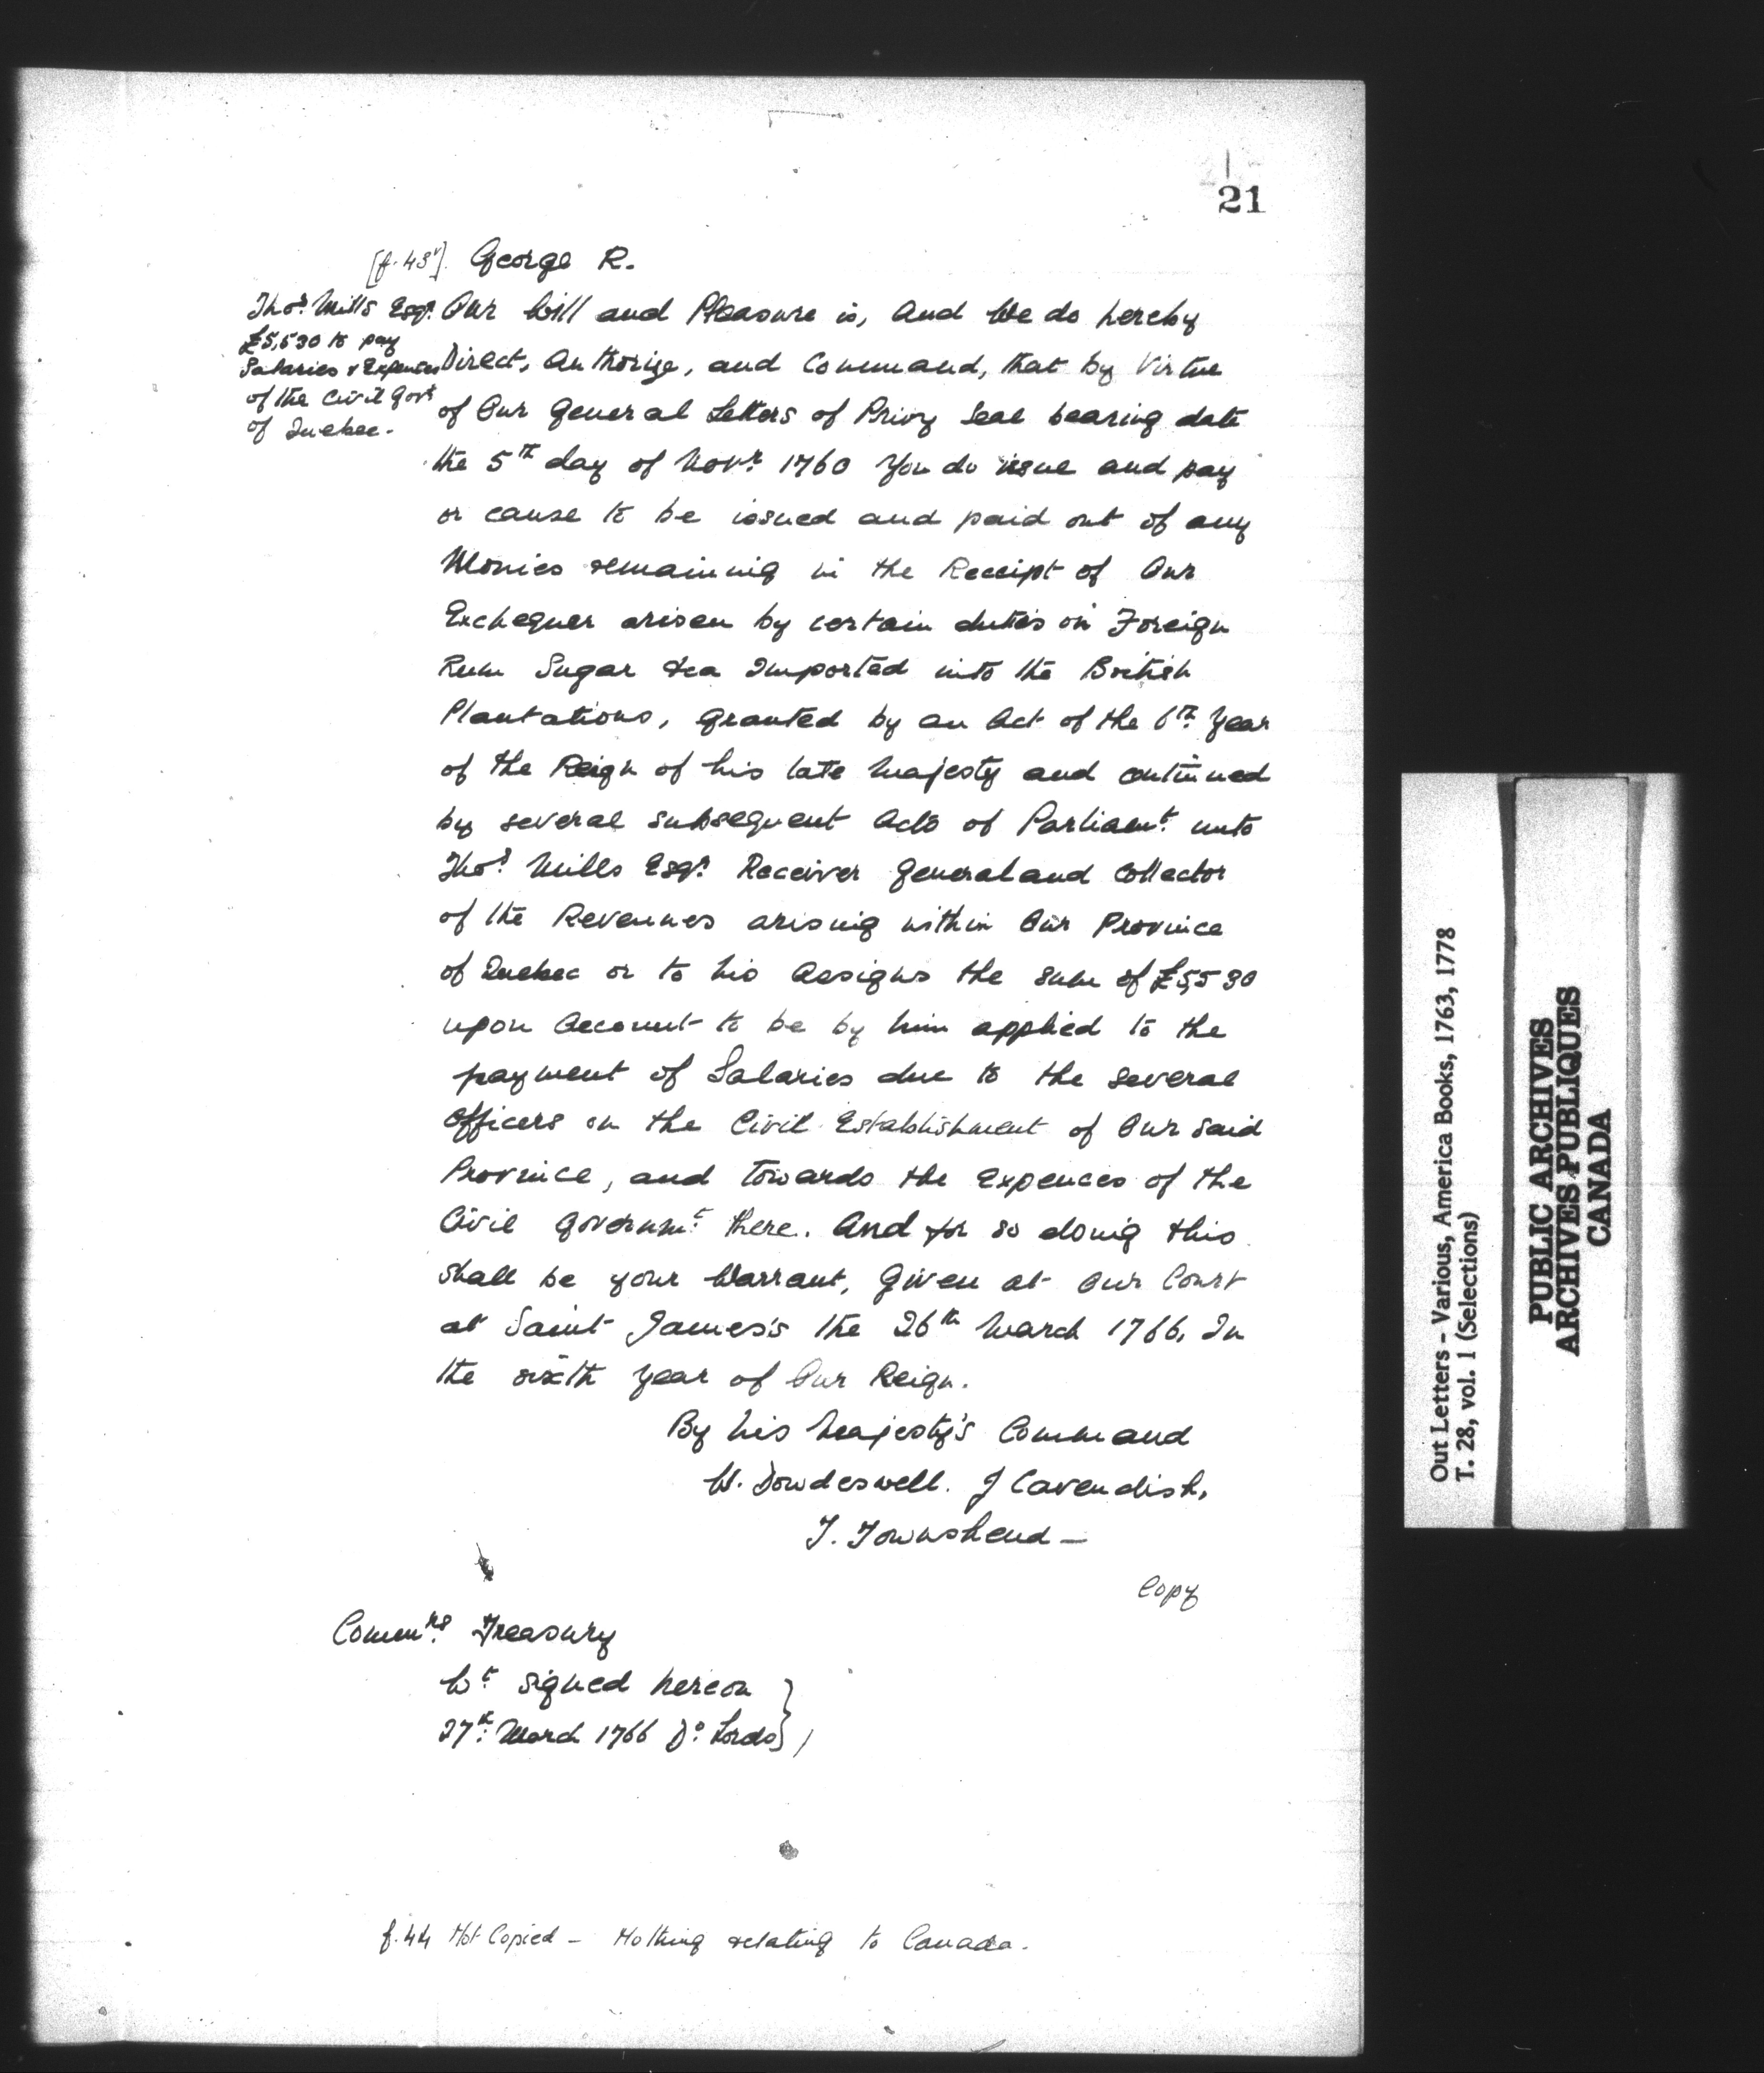 21
[f. 43v]. George R.
Thos. Mills Esqr.
£5,530 to pay
Salaries & Expences
of the Civil Govt
of Quebec.
Our Will and Pleasure is, and We do hereby
Direct, Authorize, and Command, that by Virtue
of Our General Letters of Privy Seal bearing date
the 5th day of Novr. 1760 You do issue and pay
or cause to be issued and paid out of any
Monies remaining in the Receipt of Our
Exchequer arisen by certain duties on Foreign
Rum Sugar &ca Imported into the British
Plantations, granted by an Act of the 6th. Year
of the Reign of his late Majesty and continued
by several subsequent Acts of Parliamt. unto
Thos. Mills Esqr. Receiver General and Collector
of the Revenues arising within Our Province
of Quebec or to his Assigns the sum of £5,530
upon Account to be by him applied to the
payment of Salaries due to the several
Officers on the Civil Establishment of Our said
Province, and towards the Expences of the
Civil Governmt. there. And for so doing this
shall be your Warrant, Given at Our Court
at Saint James's the 26th March 1766, In
the sixth Year of Our Reign.
By his Majesty's Command
W. Dowdeswell. J Cavendish,
T. Townshend —
Copy
Commrs. Treasury
Wt. signed hereon
27th. March 1766 Do. Lords
f. 44 Not Copied – Nothing relating to Canada.
Out Letters - Various, America Books, 1763, 1778
T. 28, vol. 1 (Selections)
PUBLIC ARCHIVES
ARCHIVES PUBLIQUES
CANADA